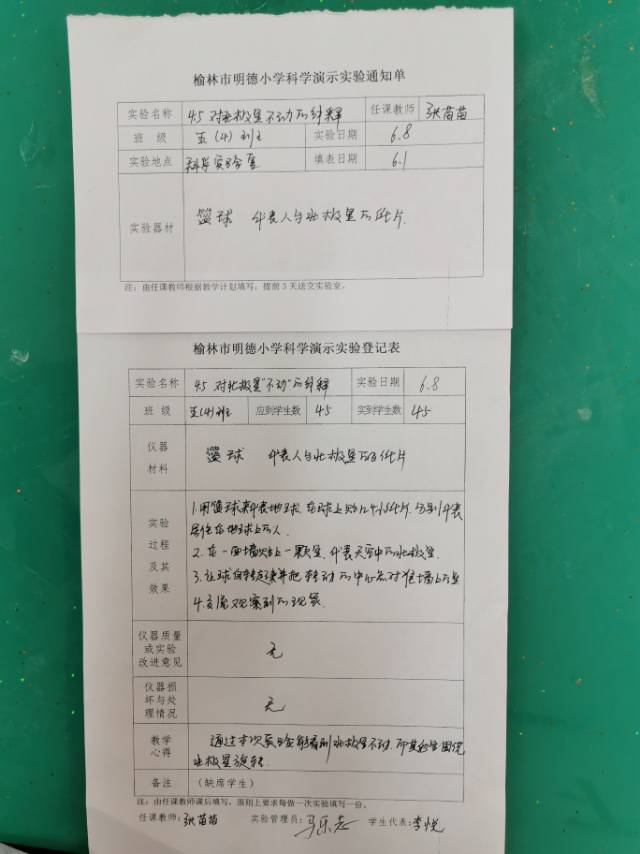 榆林市明德小学科学演示实验通知单
实验名称 45 对北极星不动的解释 任课教师 张苗苗
班 级 五(4)班 实验日期 6.8
实验地点 科学实验室 填表日期 6.1
实验器材 篮球 代表人与北极星的纸片.
注:由任课教师根据教学计划填写,提前3天送交实验室。
榆林市明德小学科学演示实验登记表
实验名称 45 对北极星“不动”的解释 实验日期 6.8
班 级 五(4)班 应到学生数 45 实到学生数 45
仪器
材料 篮球 代表人与北极星的纸片
实验
过程
及其
效果
1.用篮球来代表地球,在球上贴几个小纸片,分别代表
居住在地球上的人.
2.在一面墙贴上一颗星,代表天空中的北极星.
3.让球自转起来并把转动的中心点对准墙上的星
4.交流观察到的现象.
仪器质量
或实验
改进意见 无
仪器损
坏与处
理情况 无
教学
心得
通过本次实验能看到北极星不动,而其他星围绕
北极星旋转.
备注 (缺席学生)
注:由任课教师课后填写,原则上要求每做一次实验填写一份。
任课教师:张苗苗 实验管理员:马乐志 学生代表:李悦